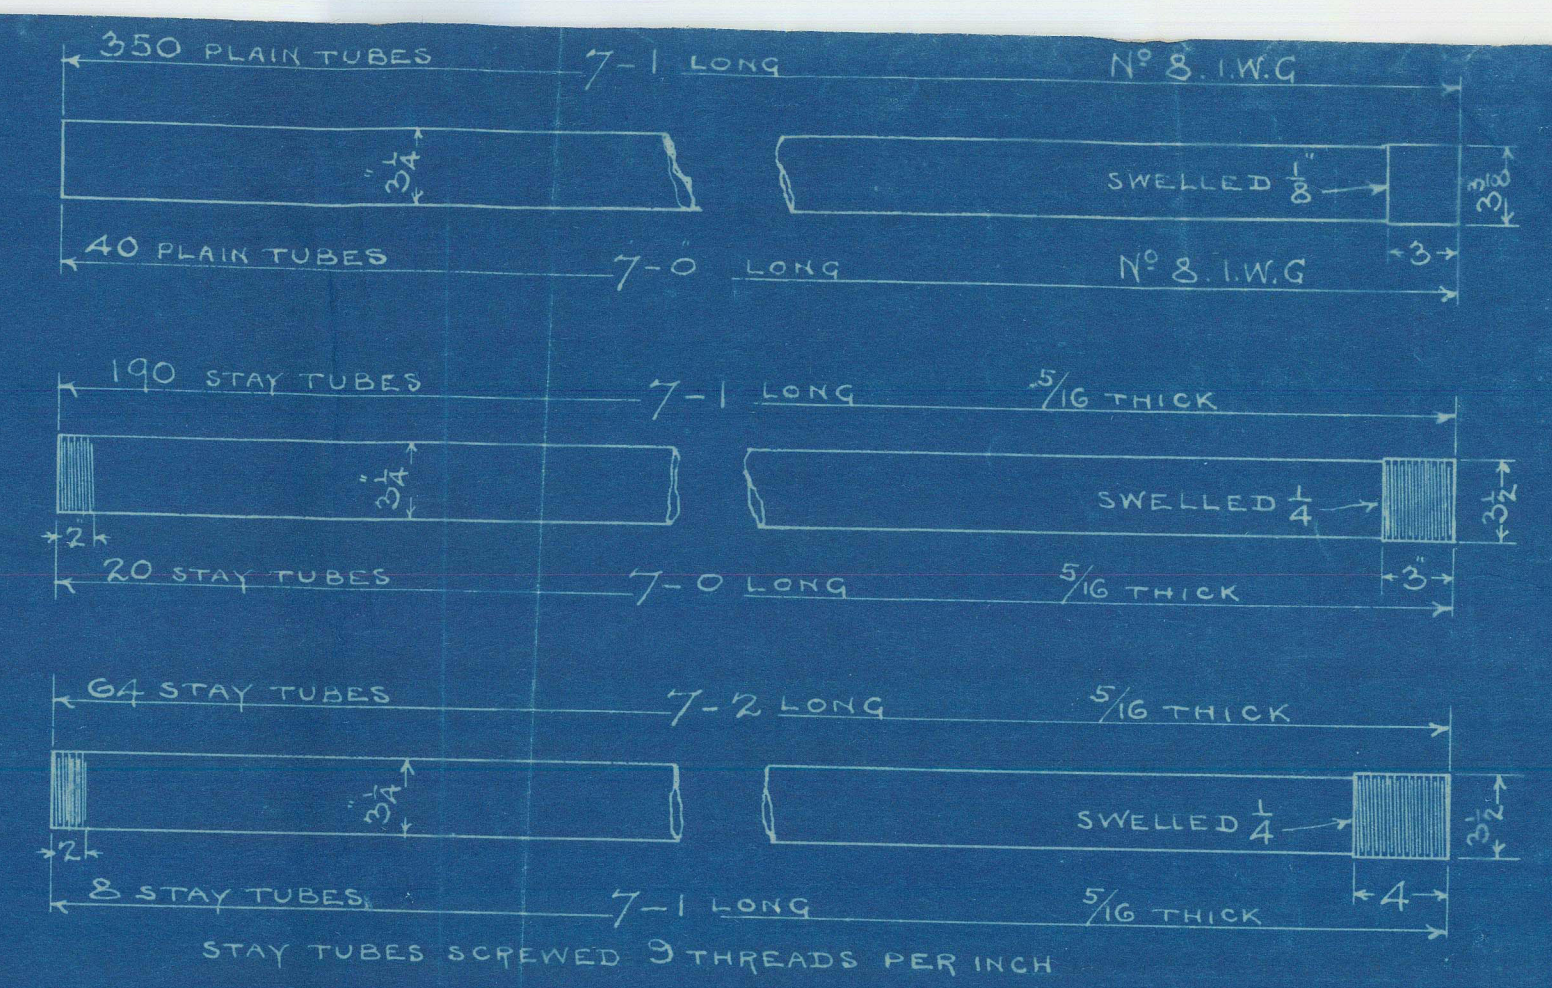 350 PLAIN TUBES 7-1 LONG Nº 8. I.W.G
3 1/4"
SWELLED 1/8"
3 3/8
3
40 PLAIN TUBES 7-0" LONG Nº 8. I.W.G
190 STAY TUBES 7-1 LONG 5/16 THICK
3 1/4"
SWELLED 1/4
3 1/2
2"
3"
20 STAY TUBES 7-0 LONG 5/16 THICK
64 STAY TUBES 7-2 LONG 5/16 THICK
3 1/4"
SWELLED 1/4
3 1/2
2
4
8 STAY TUBES 7-1 LONG 5/16 THICK
STAY TUBES SCREWED 9 THREADS PER INCH